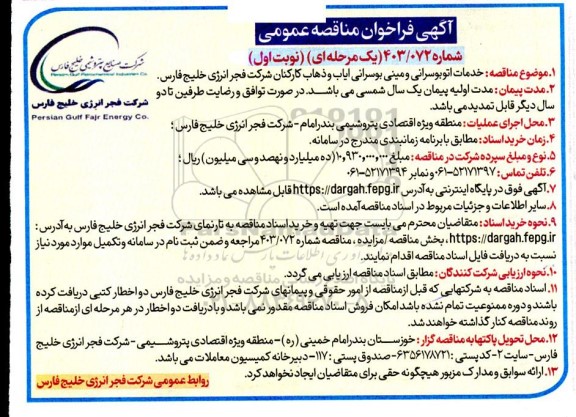 آگهی فراخوان مناقصه عمومی
شماره ۴۰۳/۰۷۲ (یک مرحله ای) (نوبت اول)
شرکت صنایع پتروشیمی خلیج فارس
Persian Gulf Petrochemical Industries Co.
شرکت فجر انرژی خلیج فارس
Persian Gulf Fajr Energy Co.
۱.موضوع مناقصه: خدمات اتوبوسرانی و مینی بوسرانی ایاب و ذهاب کارکنان شرکت فجر انرژی خلیج فارس.
۲.مدت پیمان: مدت اولیه پیمان یک سال شمسی می باشد. در صورت توافق و رضایت طرفین تا دو
سال دیگر قابل تمدید می باشد.
۳.محل اجرای عملیات: منطقه ویژه اقتصادی پتروشیمی بندرامام -شرکت فجر انرژی خلیج فارس؛
۴.زمان خرید اسناد: مطابق با برنامه زمانبندی مندرج در سامانه.
۵.نوع و مبلغ سپرده شرکت در مناقصه: مبلغ ۱۰,۹۳۰,۰۰۰,۰۰۰ (ده میلیارد و نهصد و سی میلیون) ریال؛
۶.تلفن تماس: ۰۶۱-۵۲۱۷۱۳۹۷ و نمابر ۰۶۱-۵۲۱۷۱۳۹۴
۷.آگهی فوق در پایگاه اینترنتی به آدرس https://dargah.fepg.ir قابل مشاهده می باشد.
۸.سایر اطلاعات و جزئیات مربوط در اسناد مناقصه آمده است.
۹.نحوه خرید اسناد: متقاضیان محترم می بایست جهت تهیه و خرید اسناد مناقصه به تارنمای شرکت فجر انرژی خلیج فارس به آدرس:
https://dargah.fepg.ir، بخش مناقصه /مزایده ، مناقصه شماره ۴۰۳/۰۷۲ مراجعه و ضمن ثبت نام در سامانه و تکمیل موارد مورد نیاز
نسبت به دریافت فایل اسناد مناقصه اقدام نمایند.
۱۰.نحوه ارزیابی شرکت کنندگان: مطابق اسناد مناقصه ارزیابی می گردد.
۱۱. اسناد مناقصه به شرکتهایی که قبل از مناقصه از امور حقوقی و پیمانهای شرکت فجر انرژی خلیج فارس دو اخطار کتبی دریافت کرده
باشند و دوره ممنوعیت تمام نشده باشد امکان فروش اسناد مناقصه مقدور نمی باشد و یا دریافت دو اخطار در هر مرحله ای از مناقصه از
روند مناقصه کنار گذاشته خواهند شد.
۱۲.محل تحویل پاکتها به مناقصه گزار: خوزستان بندر امام خمینی (ره) -منطقه ویژه اقتصادی پتروشیمی - شرکت فجر انرژی خلیج
فارس-سایت ۲-کدپستی: ۶۳۵۶۱۷۸۷۲۱- صندوق پستی: ۱۱۷- دبیرخانه کمیسیون معاملات می باشد.
۱۳. ارائه سوابق و مدارک مزبور هیچگونه حقی برای متقاضیان ایجاد نخواهد کرد.
روابط عمومی شرکت فجر انرژی خلیج فارس